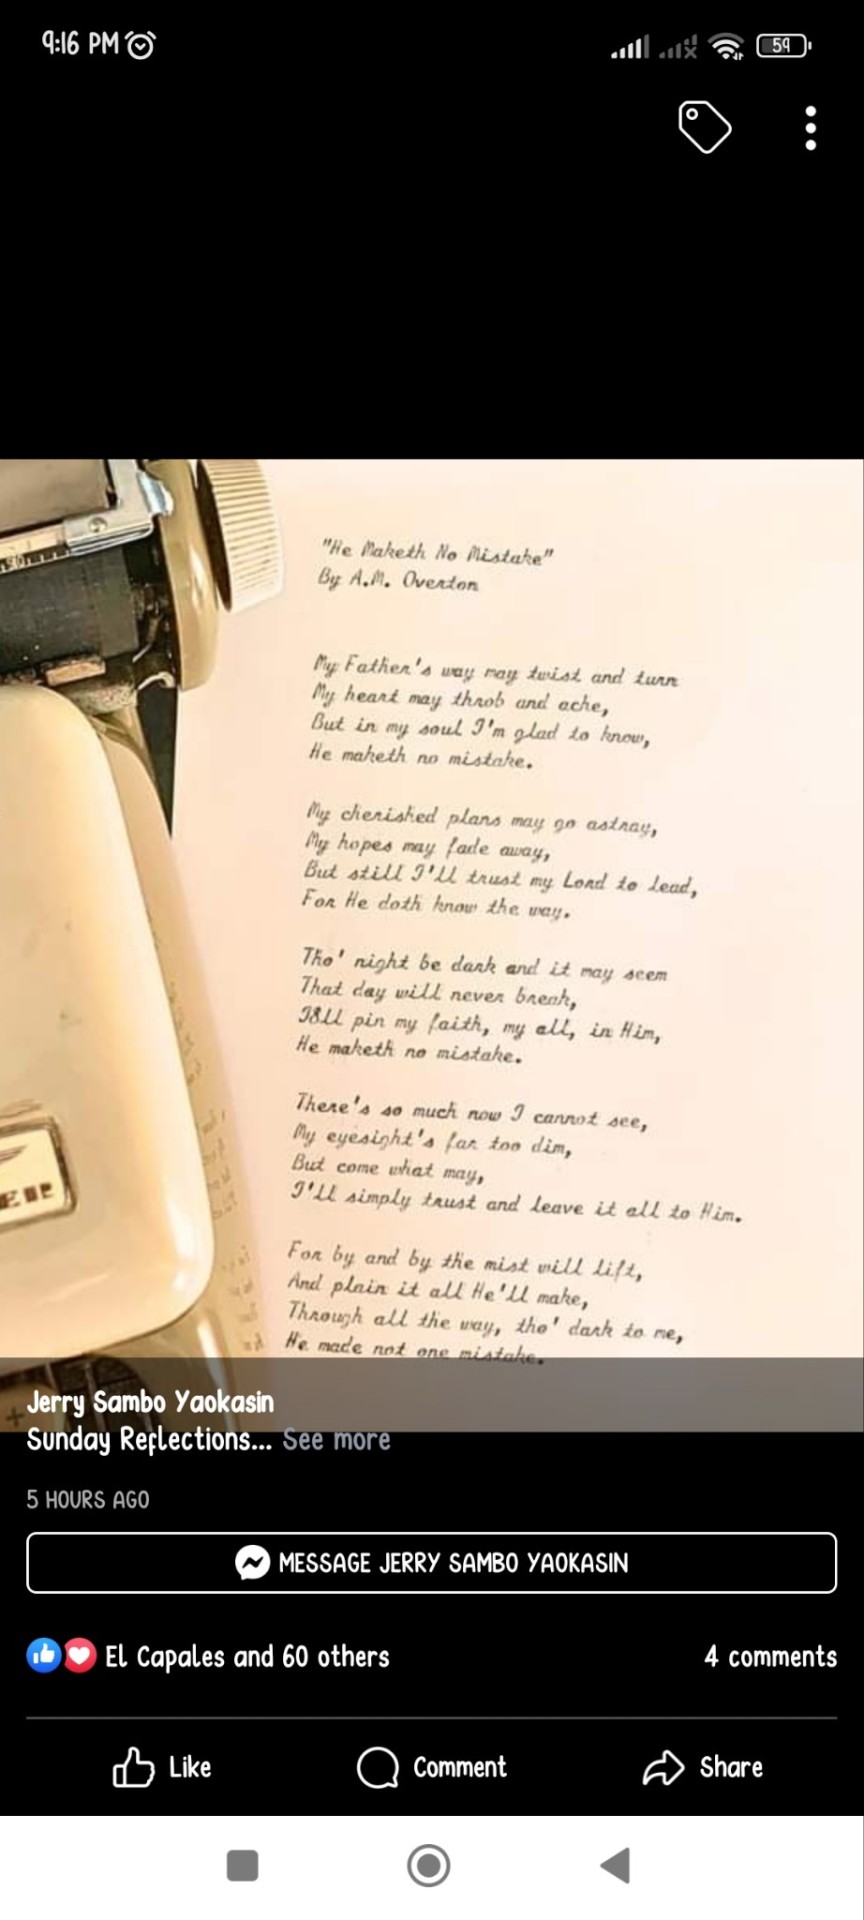 9:16 PM
59
"He Maketh No Mistake"
By A.M. Overton
My Father's way may twist and turn
My heart may throb and ache,
But in my soul I'm glad to know,
He maketh no mistake.
My cherished plans may go astray,
My hopes may fade away,
But still I'll trust my Lord to lead,
For He doth know the way.
Tho' night be dark and it may seem
That day will never break,
I8ll pin my faith, my all, in Him,
He maketh no mistake.
There's so much now I cannot see,
My eyesight's far too dim,
But come what may,
I'll simply trust and leave it all to Him.
For by and by the mist will lift,
And plain it all He'll make,
Through all the way, tho' dark to me,
He made not one mistake.
Jerry Sambo Yaokasin
Sunday Reflections... See more
5 HOURS AGO
MESSAGE JERRY SAMBO YAOKASIN
El Capales and 60 others
4 comments
Like
Comment
Share